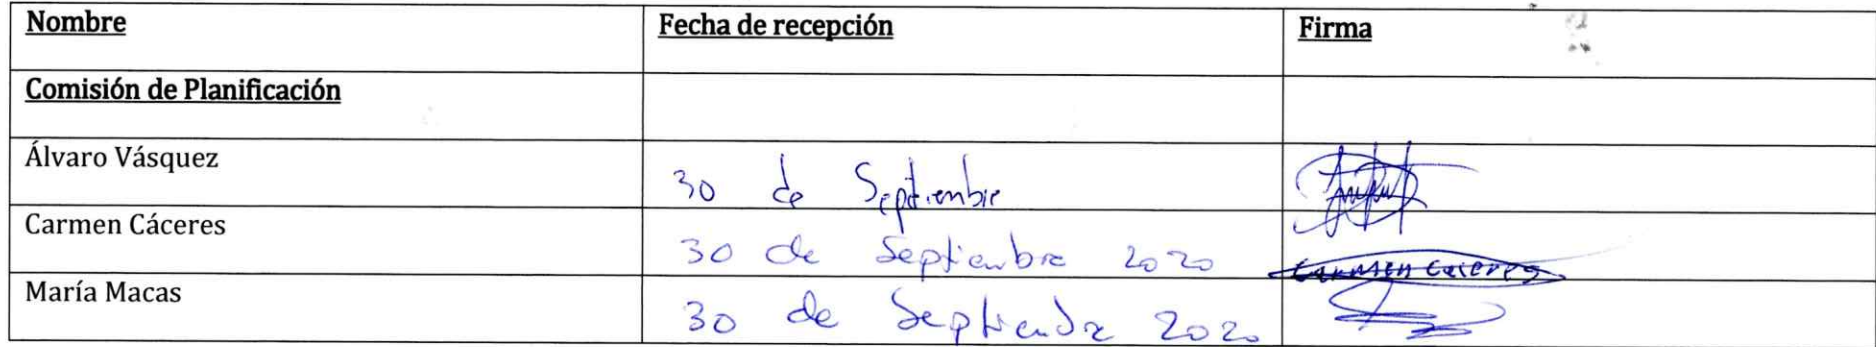 Nombre Fecha de recepción Firma
Comisión de Planificación
Álvaro Vásquez 30 de Septiembre
Carmen Cáceres 30 de Septiembre 2020 Carmen Caceres
María Macas 30 de Septiembre 2020